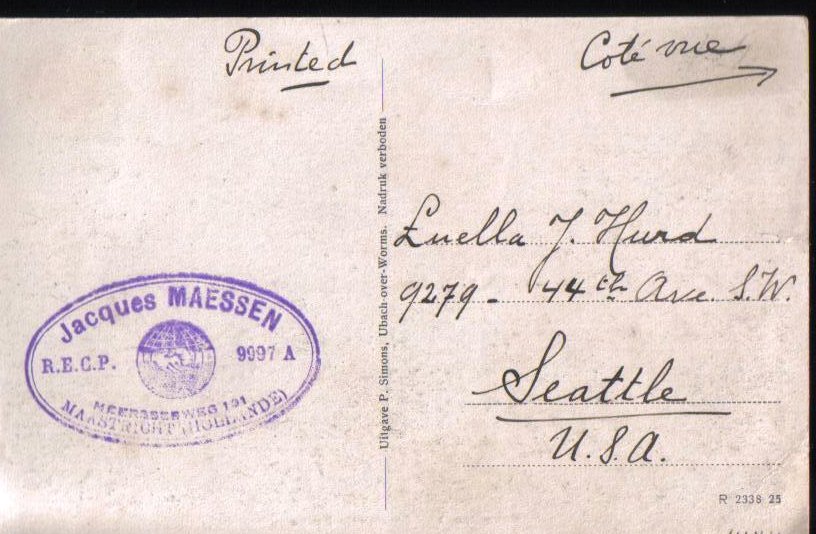 Printed
Coté vue
Luella J. Hurd
9279 - 44th Ave. S.W.
Seattle
U.S.A.
Jacques MAESSEN
R.E.C.P. 9997 A
MEERSSERWEG 191
MAASTRICHT (HOLLANDE)
Uitgave P. Simons, Ubach-over-Worms. Nadruk verboden
R 2338 25